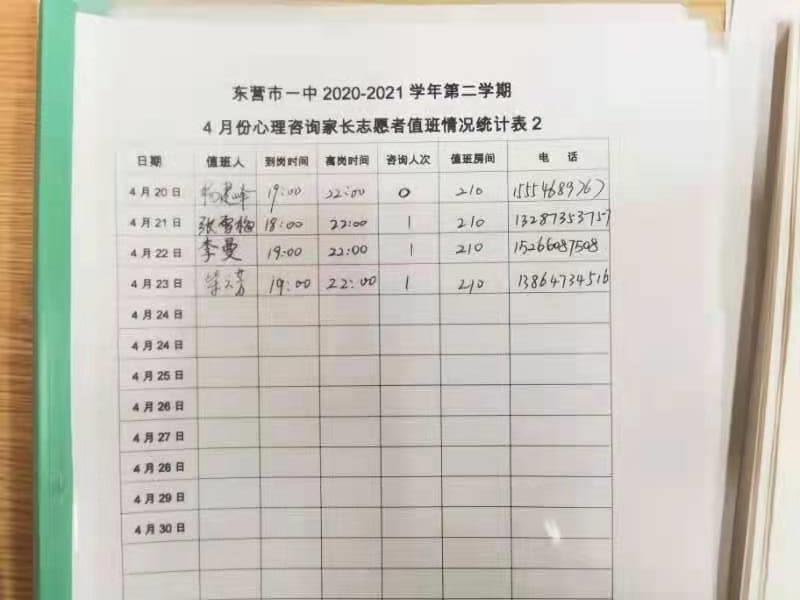 东营市一中 2020-2021 学年第二学期
4 月份心理咨询家长志愿者值班情况统计表 2
日期 值班人 到岗时间 离岗时间 咨询人次 值班房间 电 话
4 月 20 日 杨建峰 19:00 22:00 0 210 15554689767
4 月 21 日 张雪梅 18:00 22:00 1 210 13287353757
4 月 22 日 李曼 19:00 22:00 1 210 15266087508
4 月 23 日 19:00 22:00 1 210 13864734516
4 月 24 日
4 月 24 日
4 月 25 日
4 月 26 日
4 月 27 日
4 月 28 日
4 月 29 日
4 月 30 日